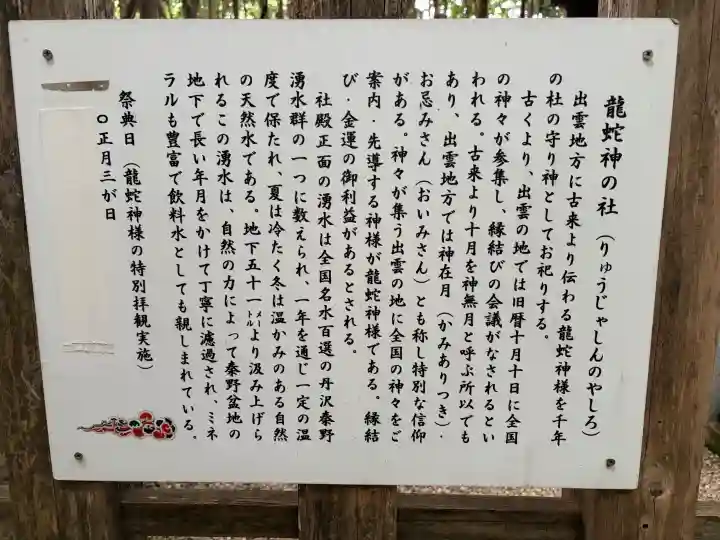 龍蛇神の社 (りゅうじゃしんのやしろ)
出雲地方に古来より伝わる龍蛇神様を千年
の杜の守り神としてお祀りする。
古くより、出雲の地では旧暦十月十日に全国
の神々が参集し、縁結びの会議がなされるとい
われる。古来より十月を神無月と呼ぶ所以でも
あり、出雲地方では神在月(かみありつき)・
お忌みさん(おいみさん)とも称し特別な信仰
がある。神々が集う出雲の地に全国の神々をご
案内・先導する神様が龍蛇神様である。縁結
び・金運の御利益があるとされる。
社殿正面の湧水は全国名水百選の丹沢秦野
湧水群の一つに数えられ、一年を通じ一定の温
度で保たれ、夏は冷たく冬は温かみのある自然
の天然水である。地下五十一メートルより汲み上げら
れるこの湧水は、自然の力によって秦野盆地の
地下で長い年月をかけて丁寧に濾過され、ミネ
ラルも豊富で飲料水としても親しまれている。
祭典日(龍蛇神様の特別拝観実施)
○正月三が日